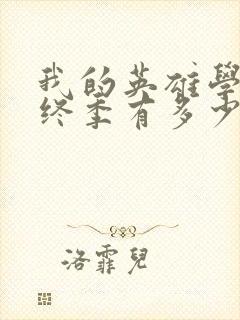 我的英雄學
终季有多少
洛霏兒